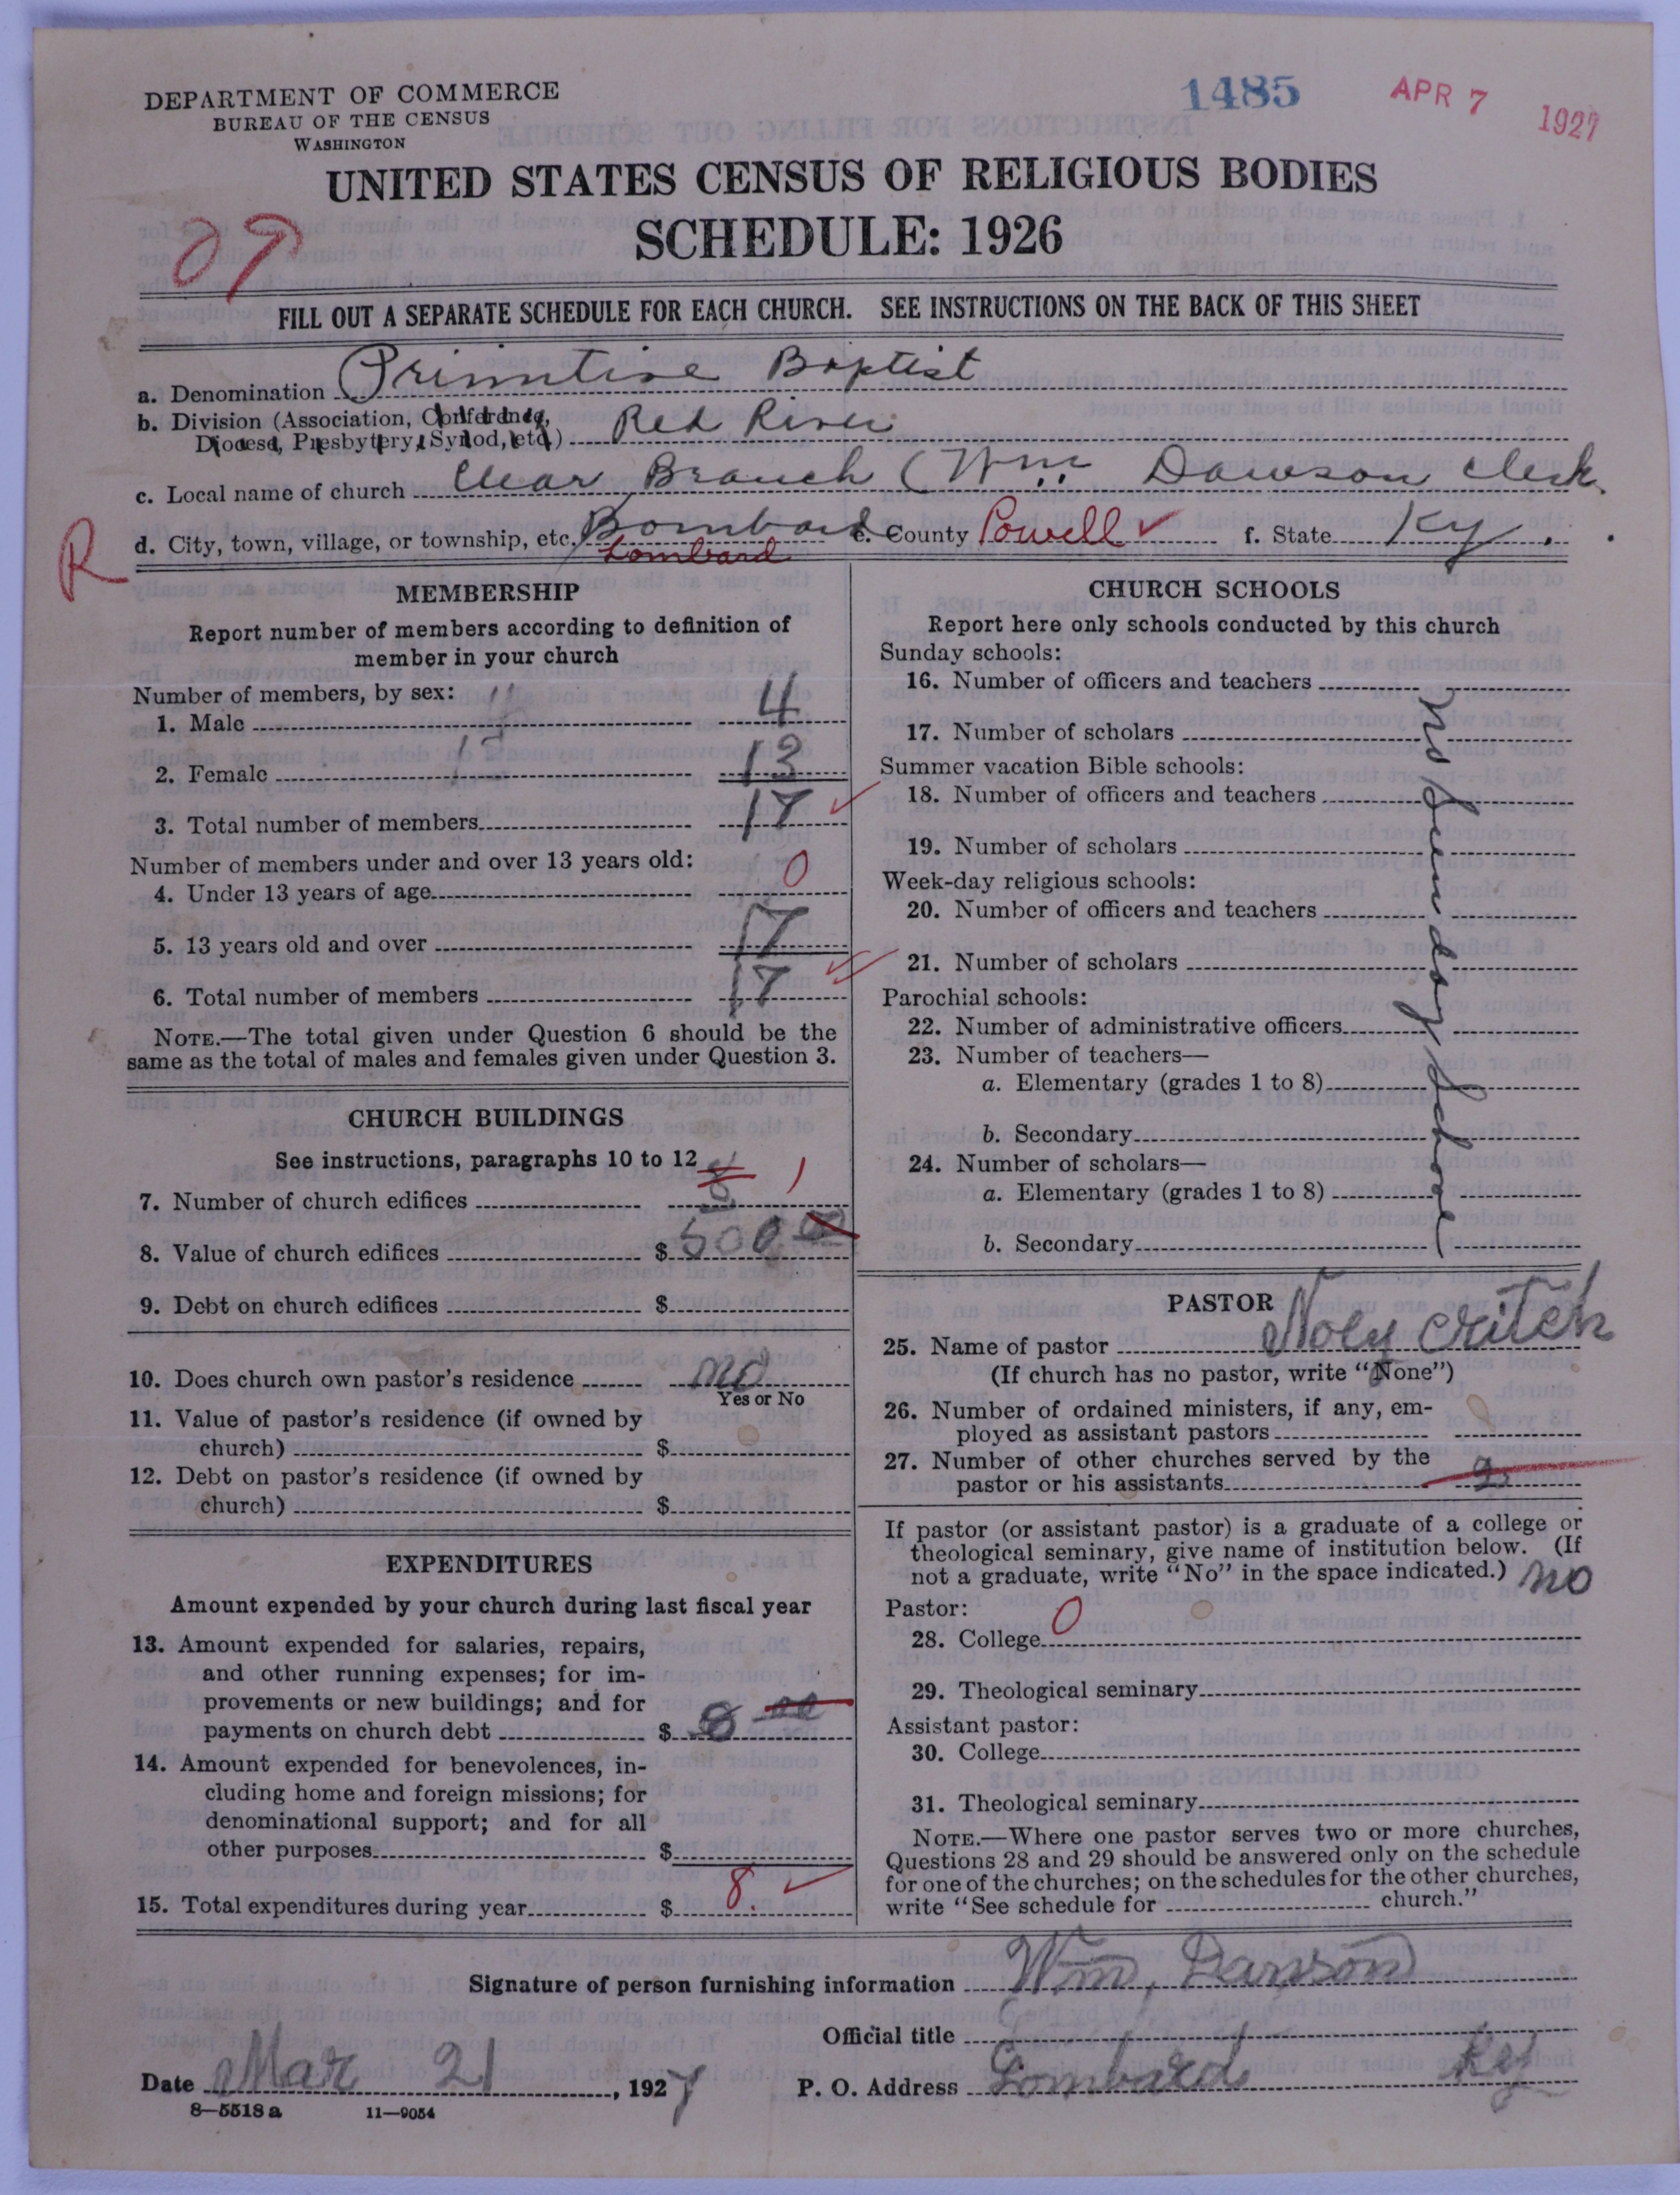 DEPARTMENT OF COMMERCE
BUREAU OF THE CENSUS
WASHINGTON
1485
APR 7 1927
UNITED STATES CENSUS OF RELIGIOUS BODIES
SCHEDULE: 1926
09
FILL OUT A SEPARATE SCHEDULE FOR EACH CHURCH. SEE INSTRUCTIONS ON THE BACK OF THIS SHEET
a. Denomination Primitive Baptist
b. Division (Association, Conference,
Diocese, Presbytery, Synod, etc.) Red River
c. Local name of church Clear Branch (Wm. Dawson Clerk
R
d. City, town, village, or township, etc. Bombard e. County Powell ✓ f. State Ky.
Lombard
MEMBERSHIP
Report number of members according to definition of
member in your church
Number of members, by sex:
1. Male 4
2. Female 13
3. Total number of members 17 ✓
Number of members under and over 13 years old:
4. Under 13 years of age 0
5. 13 years old and over 17
6. Total number of members 17 ✓
NOTE.—The total given under Question 6 should be the
same as the total of males and females given under Question 3.
CHURCH BUILDINGS
See instructions, paragraphs 10 to 12
7. Number of church edifices 1
8. Value of church edifices $ 500 00
9. Debt on church edifices $
10. Does church own pastor's residence no
Yes or No
11. Value of pastor's residence (if owned by
church) $
12. Debt on pastor's residence (if owned by
church) $
EXPENDITURES
Amount expended by your church during last fiscal year
13. Amount expended for salaries, repairs,
and other running expenses; for im-
provements or new buildings; and for
payments on church debt $ 8 00
14. Amount expended for benevolences, in-
cluding home and foreign missions; for
denominational support; and for all
other purposes $
15. Total expenditures during year $ 8. ✓
CHURCH SCHOOLS
Report here only schools conducted by this church
Sunday schools:
16. Number of officers and teachers
17. Number of scholars
Summer vacation Bible schools:
18. Number of officers and teachers
19. Number of scholars
Week-day religious schools:
20. Number of officers and teachers
21. Number of scholars
Parochial schools:
22. Number of administrative officers
23. Number of teachers—
a. Elementary (grades 1 to 8)
b. Secondary
24. Number of scholars—
a. Elementary (grades 1 to 8)
b. Secondary
no Sunday School
PASTOR
25. Name of pastor Noly Critch
(If church has no pastor, write "None")
26. Number of ordained ministers, if any, em-
ployed as assistant pastors
27. Number of other churches served by the
pastor or his assistants 2
If pastor (or assistant pastor) is a graduate of a college or
theological seminary, give name of institution below. (If
not a graduate, write "No" in the space indicated.) no
Pastor:
28. College 0
29. Theological seminary
Assistant pastor:
30. College
31. Theological seminary
NOTE.—Where one pastor serves two or more churches,
Questions 28 and 29 should be answered only on the schedule
for one of the churches; on the schedules for the other churches,
write "See schedule for church."
Signature of person furnishing information Wm, Dawson
Official title
Date Mar 21, 1927 P. O. Address Lombard Ky
8—5518 a 11—9054